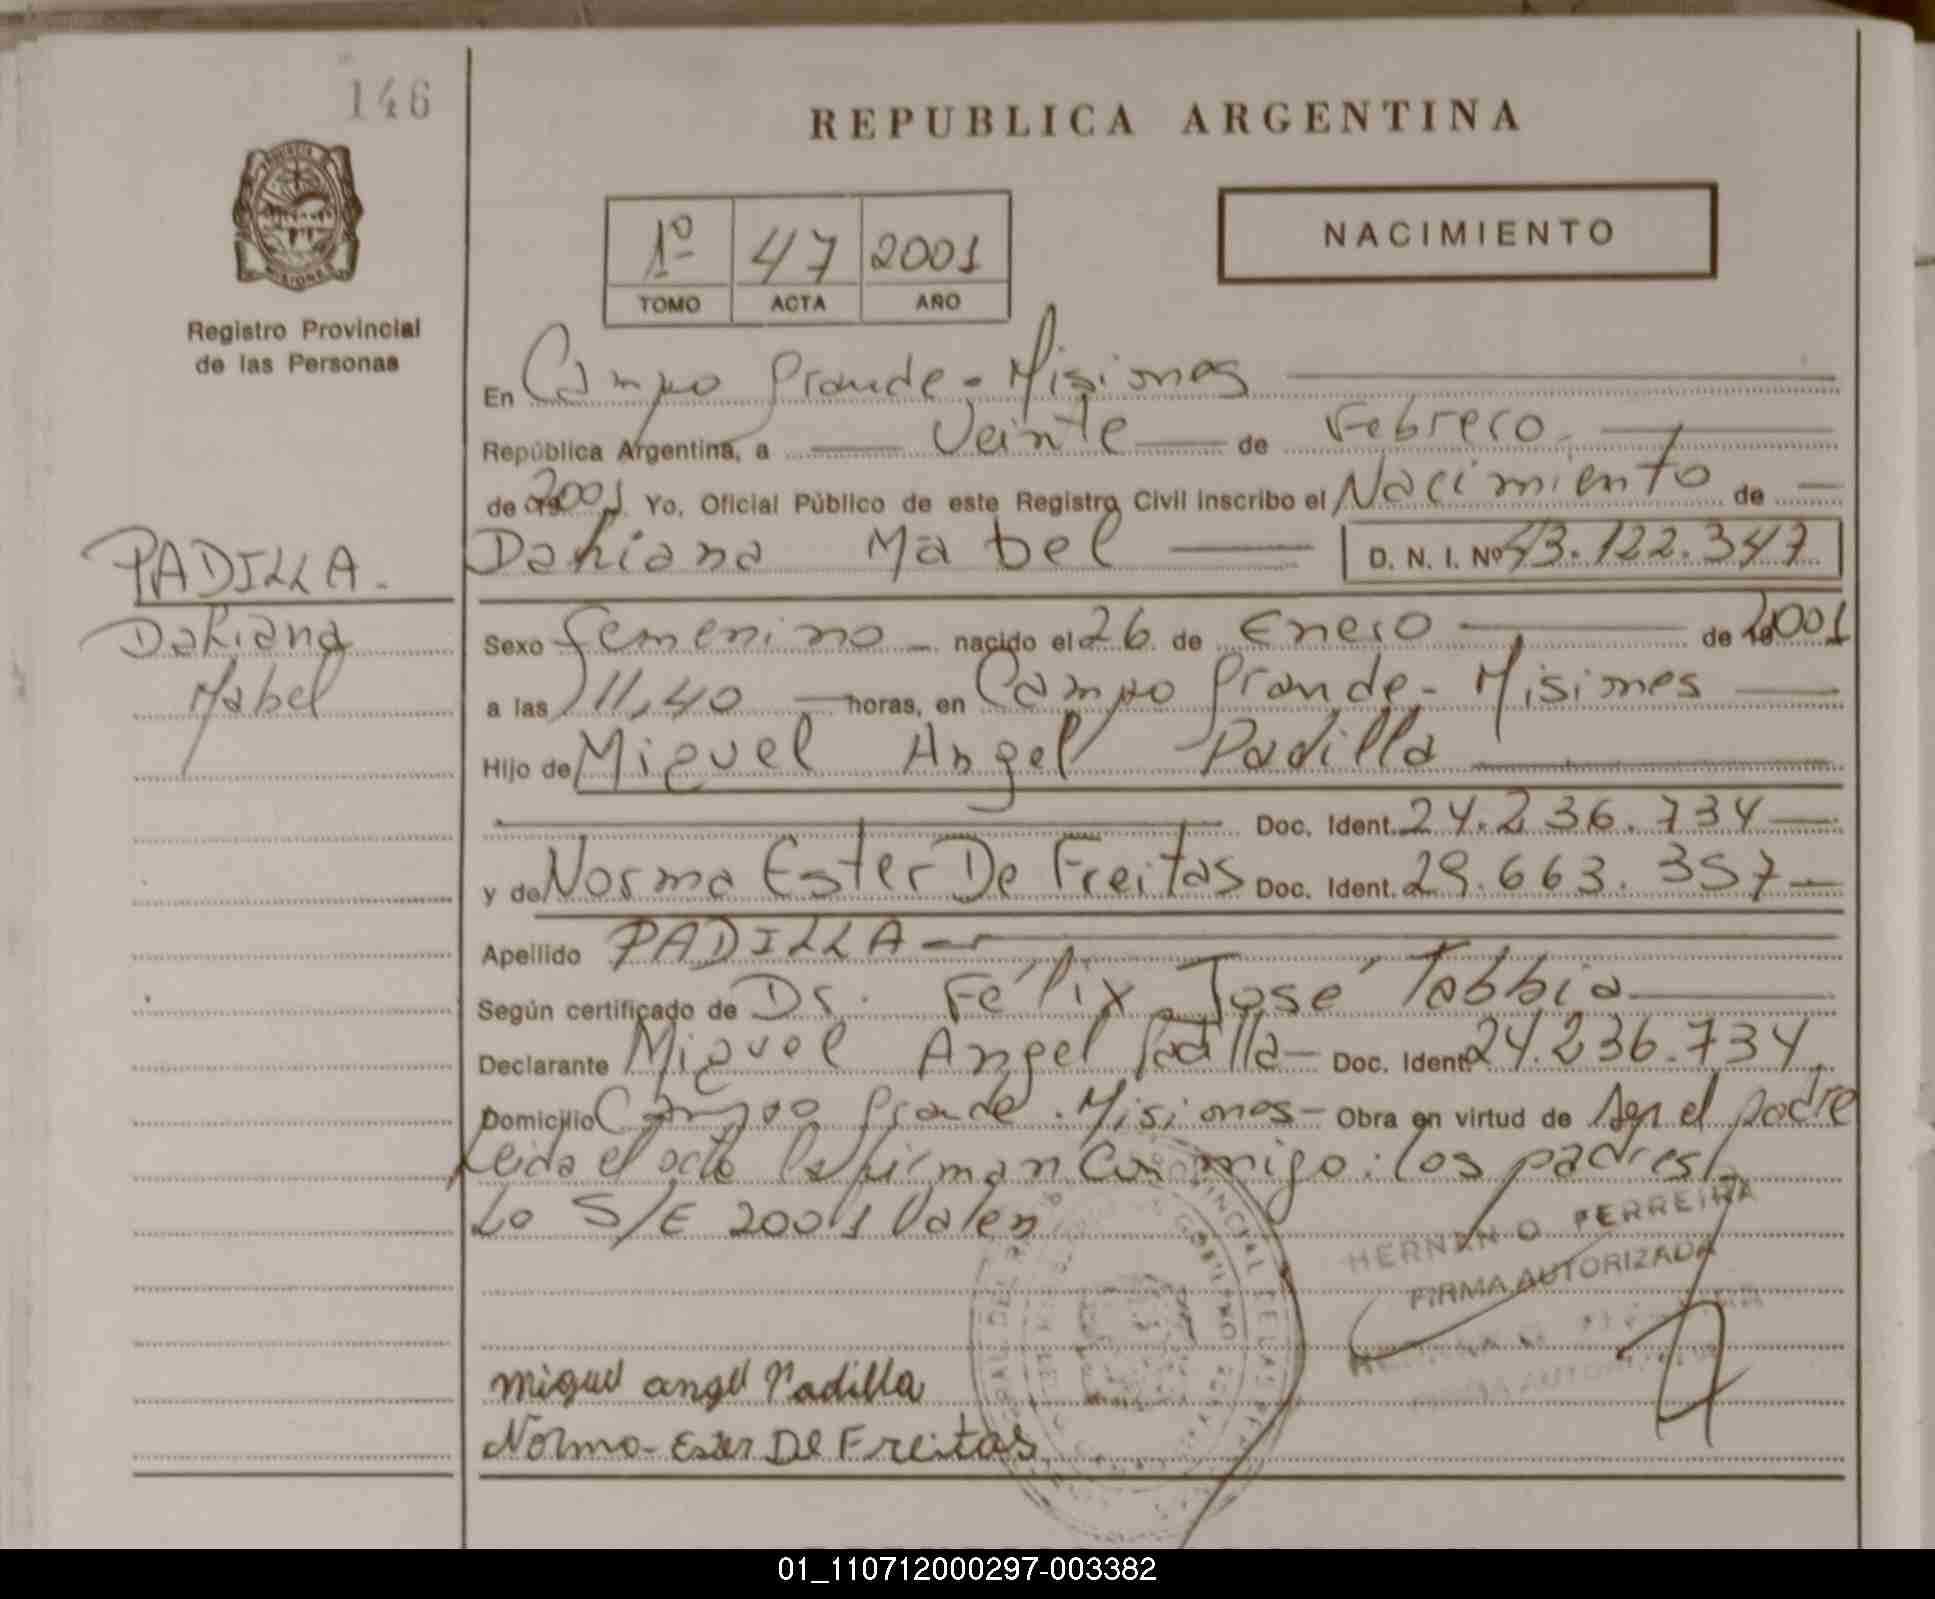 146
REPUBLICA ARGENTINA
NACIMIENTO
1º 47 2001
TOMO ACTA AÑO
Registro Provincial
de las Personas
En Campo Grande - Misiones
República Argentina, a Veinte de Febrero
de 2001 Yo, Oficial Público de este Registro Civil inscribo el Nacimiento de
Dahiana Mabel D. N. I. Nº 43.122.347
PADILLA.
Dahiana
Mabel
Sexo femenino nacido el 26 de Enero de 2001
a las 11,40 horas, en Campo Grande - Misiones
Hijo de Miguel Angel Padilla
Doc. Ident. 24.236.734
y de Norma Ester De Freitas Doc. Ident. 29.663.357
Apellido PADILLA
Según certificado de Dr. Félix José Tabbia
Declarante Miguel Angel Padilla Doc. Ident. 24.236.734
Domicilio Campo Grande - Misiones Obra en virtud de ser el padre
Leida el acta la firman conmigo: los padres
Lo S/E 2001 Valen
HERNAN O FERREIRA
FIRMA AUTORIZADA
miguel angel Padilla
Norma - Ester De Freitas
01_110712000297-003382